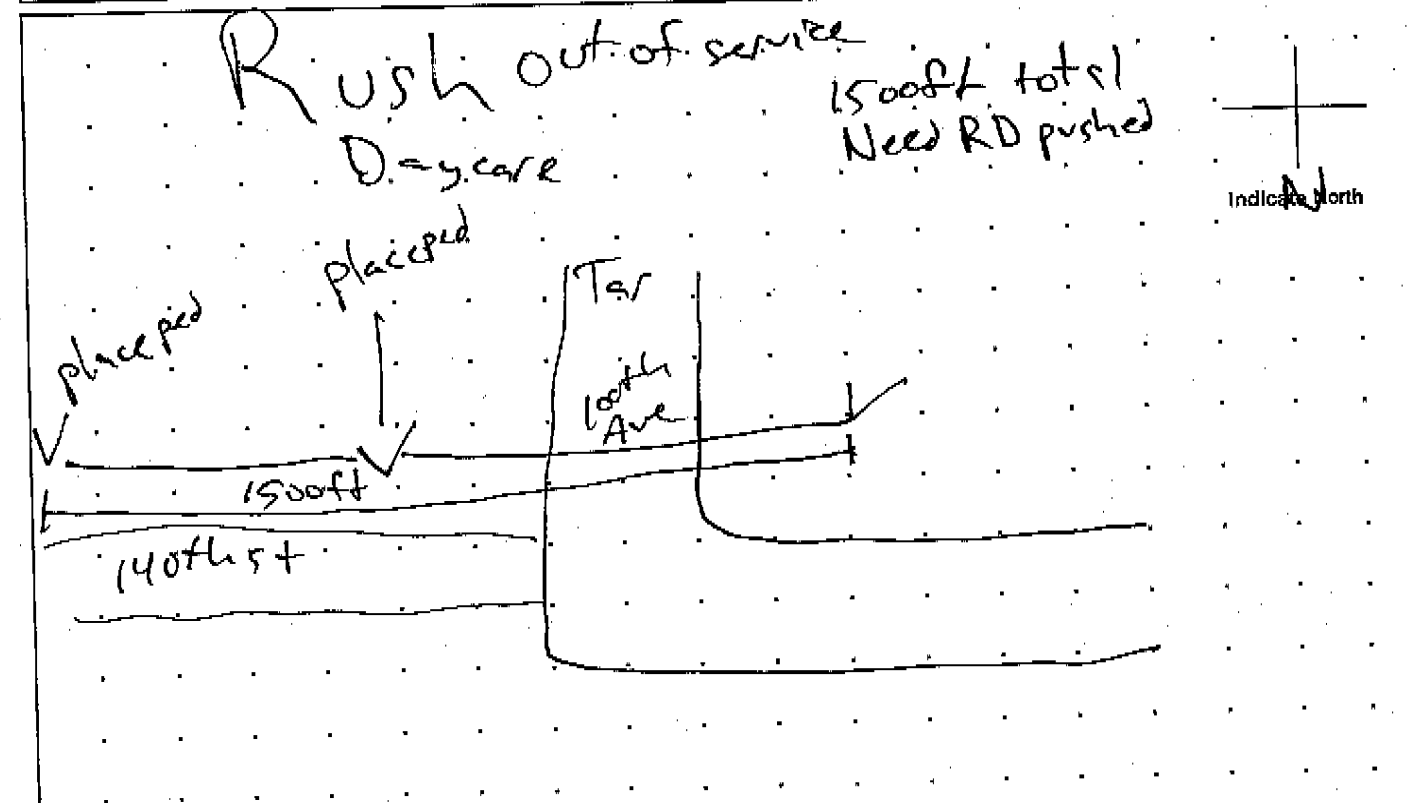 Rush out of service
Daycare
1500ft total
Need RD pushed
N
Indicate North
place ped
place ped
Tar
100th
Ave
1500ft
140th st